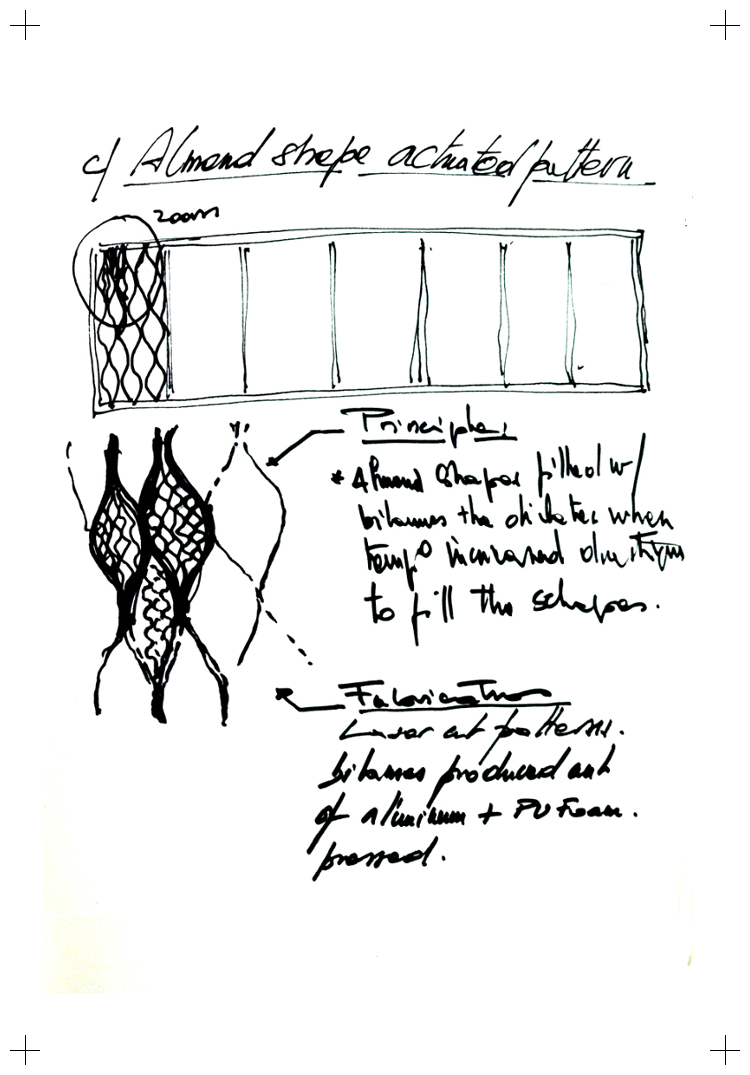 c/ Almond shape actuated pattern
zoom
Principle:
* Almond shapes filled w/
bilames the dilates when
temp° increased
to fill the schapes.
Fabrication
Laser cut patterns.
bilames produced out
of aluminium + PV Foam.
pressed.